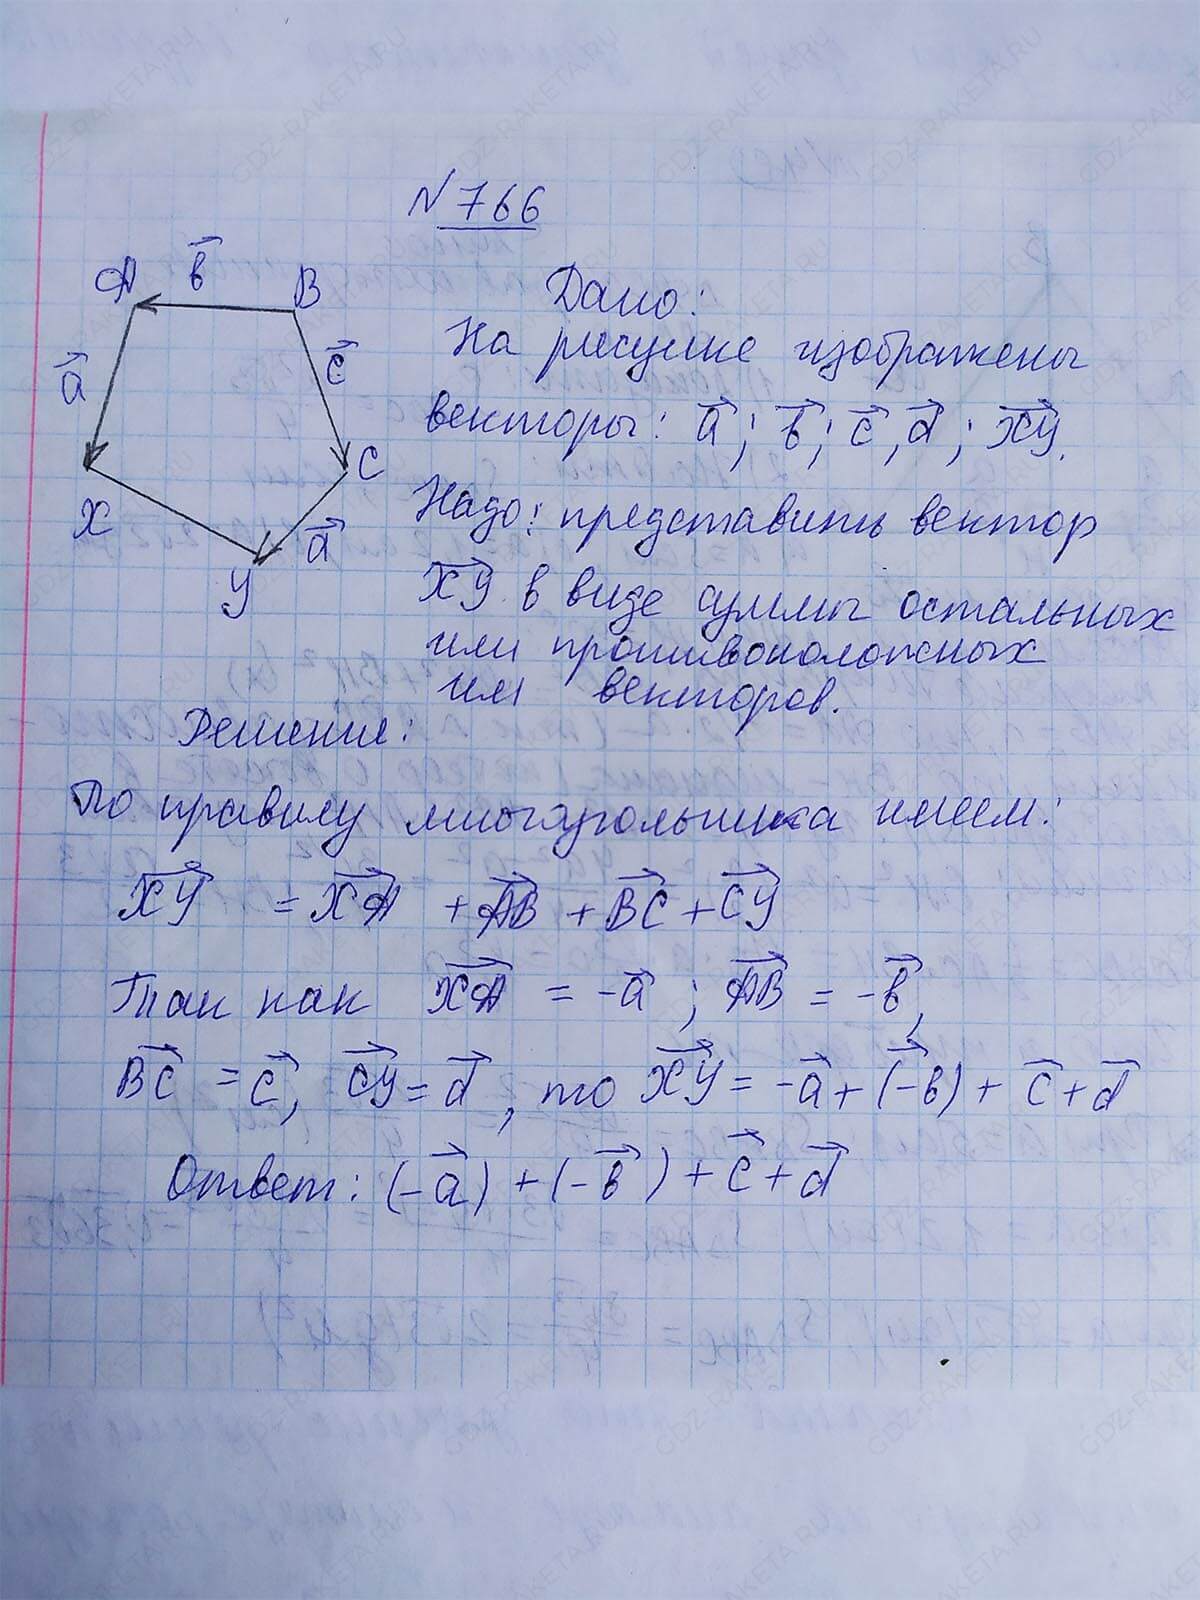 № 766
A b⃗ B
a⃗ c⃗
X C
Y d⃗
Дано:
На рисунке изображены
векторы: a⃗; b⃗; c⃗, d⃗; XY⃗.
Надо: представить вектор
XY⃗ в виде суммы остальных
или противоположных
им векторов.
Решение:
По правилу многоугольника имеем:
XY⃗ = XA⃗ + AB⃗ + BC⃗ + CY⃗
Так как XA⃗ = -a⃗; AB⃗ = -b⃗,
BC⃗ = c⃗, CY⃗ = d⃗, то XY⃗ = -a⃗ + (-b⃗) + c⃗ + d⃗
Ответ: (-a⃗) + (-b⃗) + c⃗ + d⃗
GDZ-RAKETA.RU